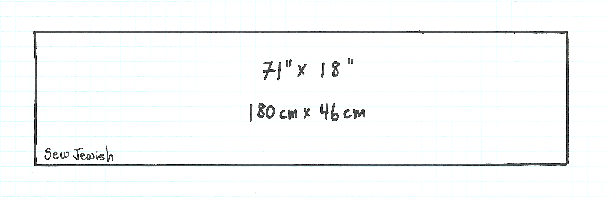 71" x 18"
180 cm x 46 cm
Sew Jewish